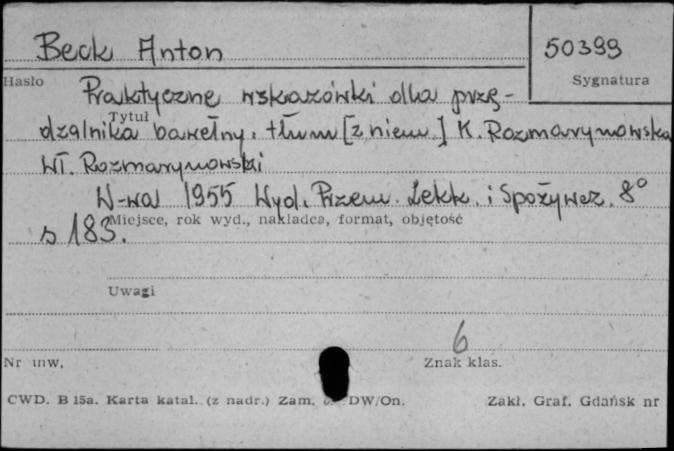 Beck Anton
50399
Hasło
Sygnatura
Praktyczne wskazówki dla przę-
Tytuł
dzalnika bawełny. tłum [z niem.] K. Rozmarynowska
Wł. Rozmarynowski
W-wa 1955 Wyd. Przem. Lekk. i Spożywcz. 8°
Miejsce, rok wyd., nakładca, format, objętość
s 183.
Uwagi
6
Nr inw.
Znak klas.
CWD. B 15a. Karta katal. (z nadr.) Zam. DW/On.
Zakł. Graf. Gdańsk nr